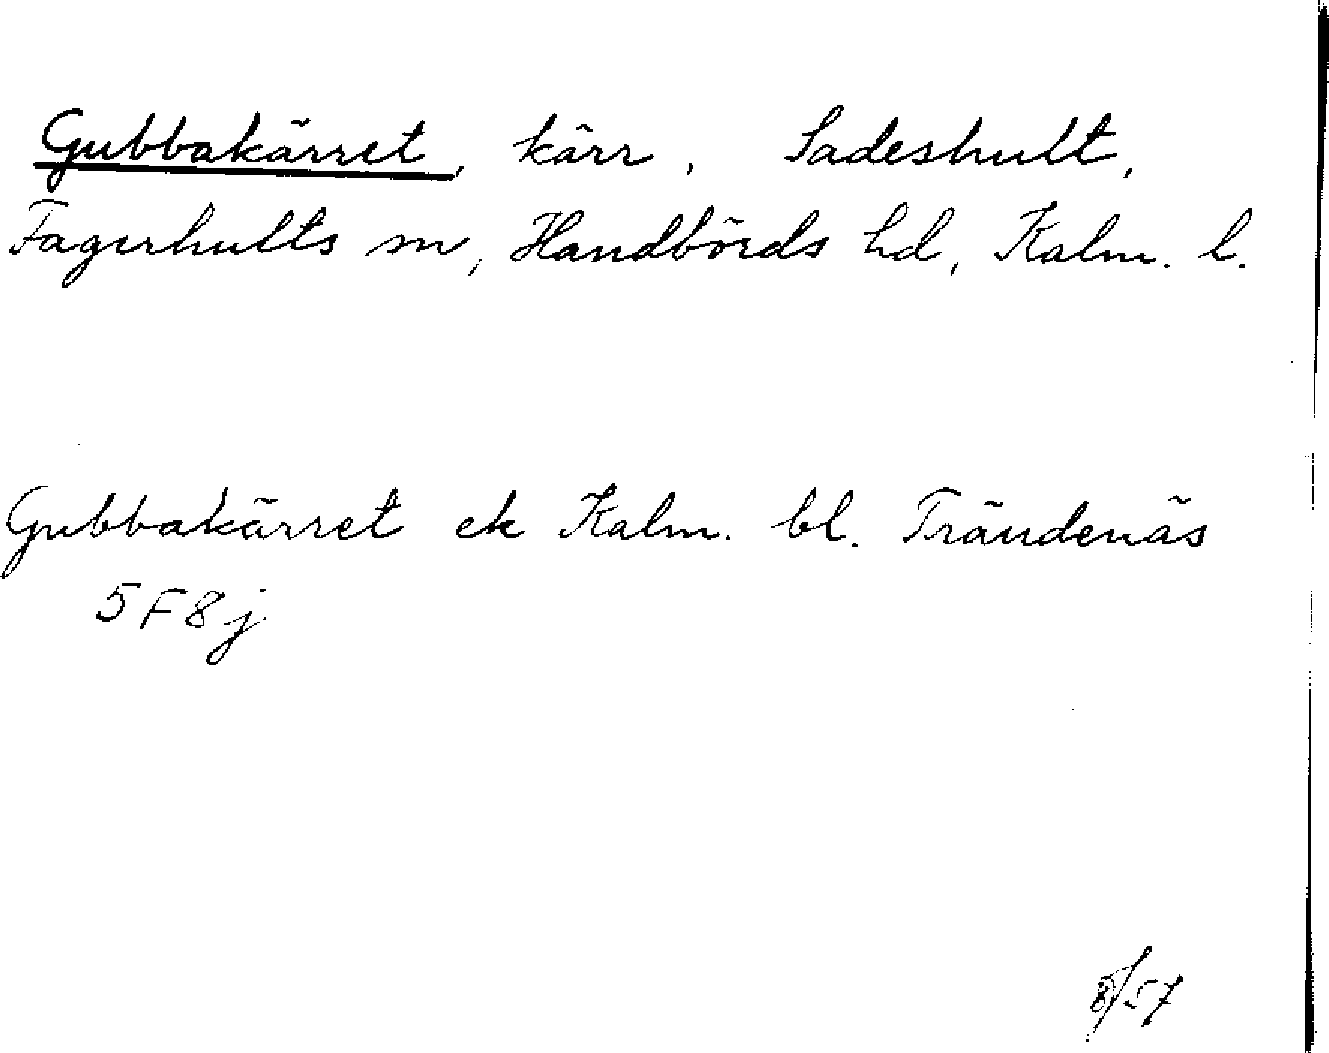 Gubbakärret, kärr, Sadeshult,
Fagerhults sn, Handbörds hd, Kalm. l.
Gubbakärret ek Kalm. bl. Trändenäs
5F8j
8/57